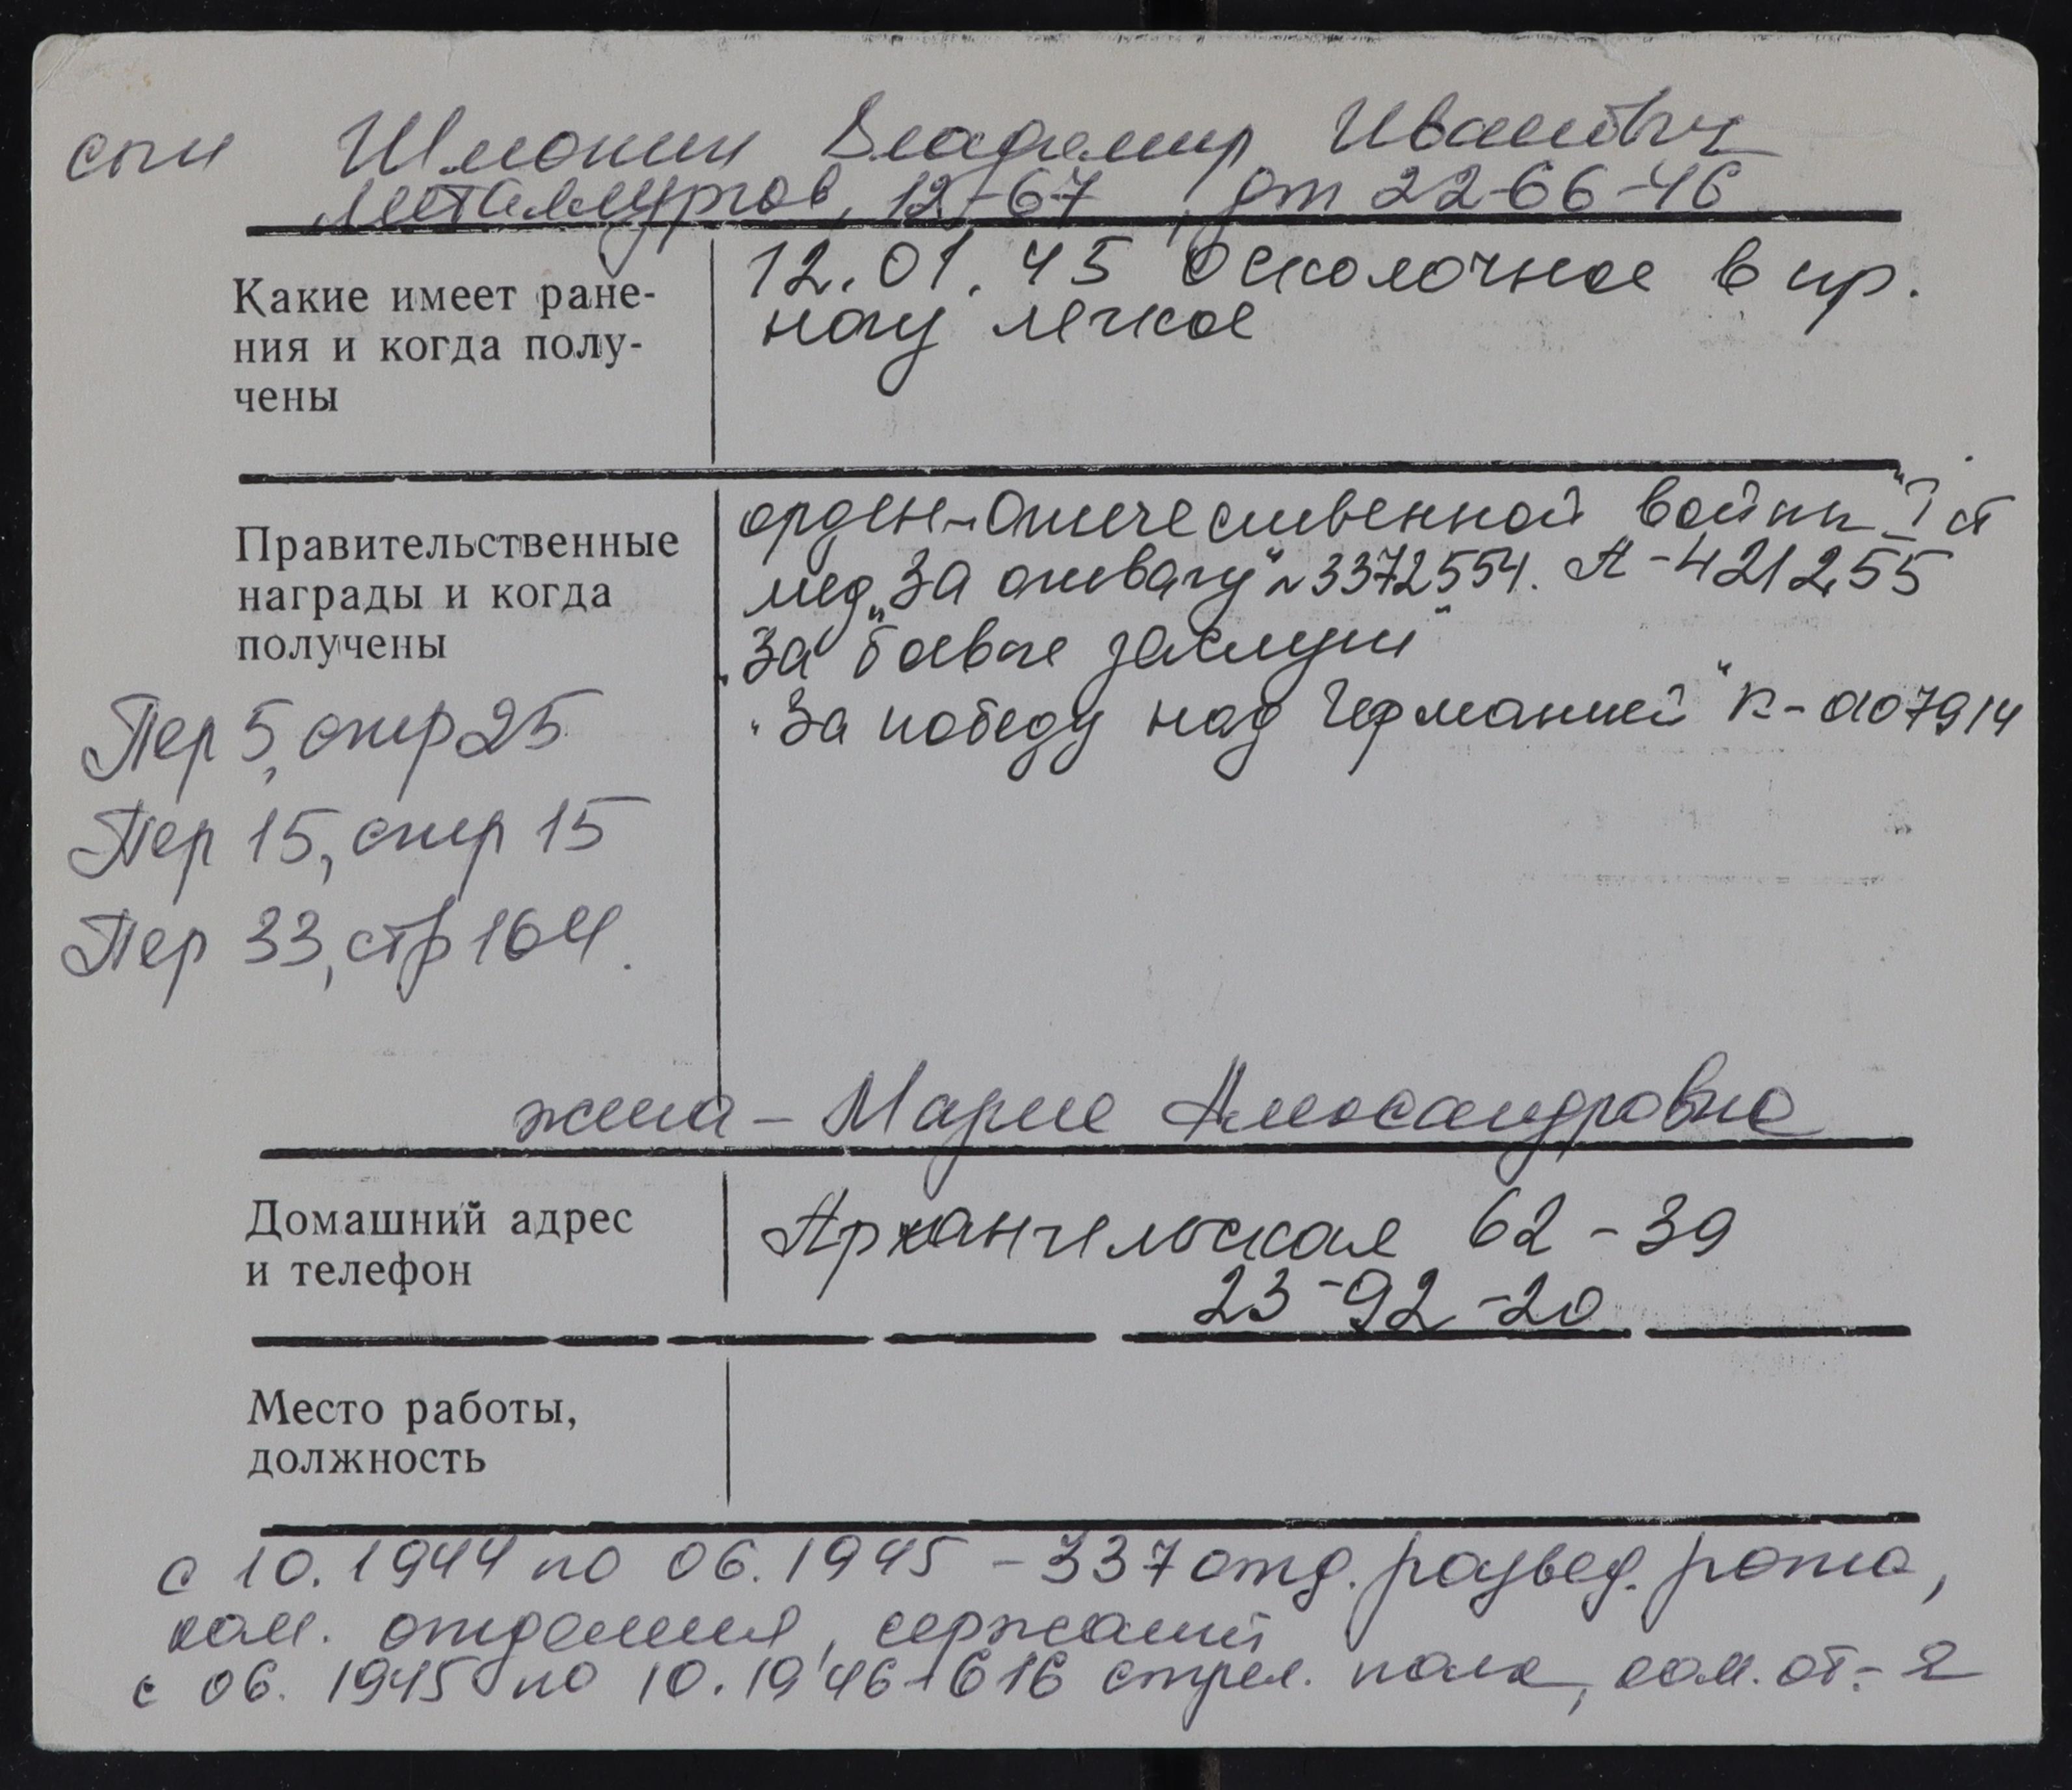 сын Шмонин Владимир Иванович
Металлургов, 12-67, дт 22-66-46
Какие имеет ране-
ния и когда полу-
чены
12.01.45 Осколочное в пр.
ногу легкое
Правительственные
награды и когда
получены
орден "Отечественной войны" I ст
мед. "За отвагу" № 3372554. А-421255
"За боевые заслуги"
"За победу над Германией" К-0107914
Пер 5, стр 25
Пер 15, стр 15
Пер 33, стр 164.
жена - Мария Александровна
Домашний адрес
и телефон
Архангельская 62-39
23-92-20
Место работы,
должность
с 10.1944 по 06.1945 - 337 отд. развед. рота,
ком. отделения, сержант
с 06.1945 по 10.1946 - 616 стрел. полк, ком. от-я